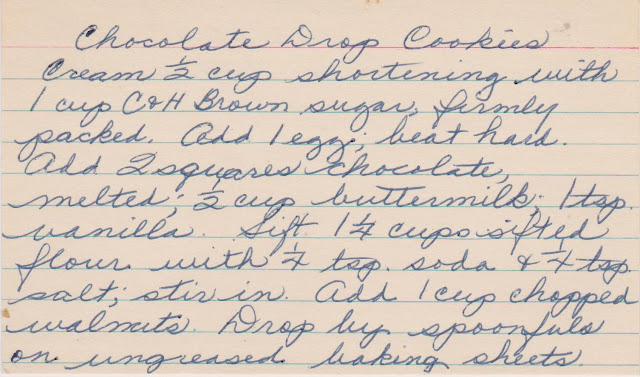 Chocolate Drop Cookies
Cream 1/2 cup shortening with
1 cup C&H Brown sugar, firmly
packed. Add 1 egg; beat hard.
Add 2 squares chocolate,
melted; 1/2 cup buttermilk; 1 tsp.
vanilla. Sift 1 1/4 cups sifted
flour with 1/4 tsp. soda & 1/4 tsp.
salt; stir in. Add 1 cup chopped
walnuts. Drop by spoonfuls
on ungreased baking sheets.